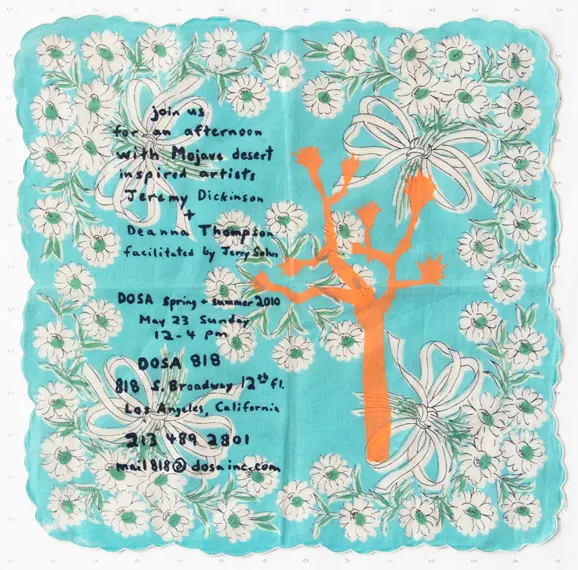 join us
for an afternoon
with Mojave desert
inspired artists
Jeremy Dickinson
+
Deanna Thompson
facilitated by Jerry Sohn
DOSA spring + summer 2010
May 23 Sunday
12-4 pm
DOSA 818
818 S. Broadway 12th fl.
Los Angeles, California
213 489 2801
mail818@dosainc.com